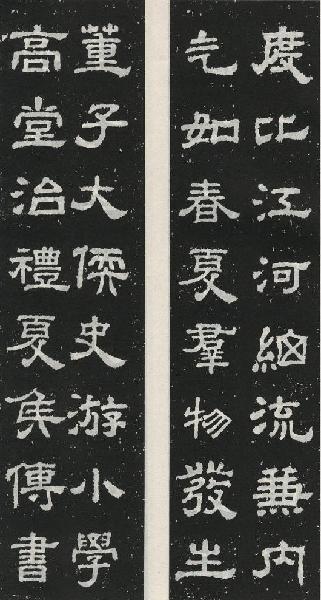 度比江河細流兼内
气如春夏羣物發生
董子大儒史游小學
高堂治禮夏侯傳書